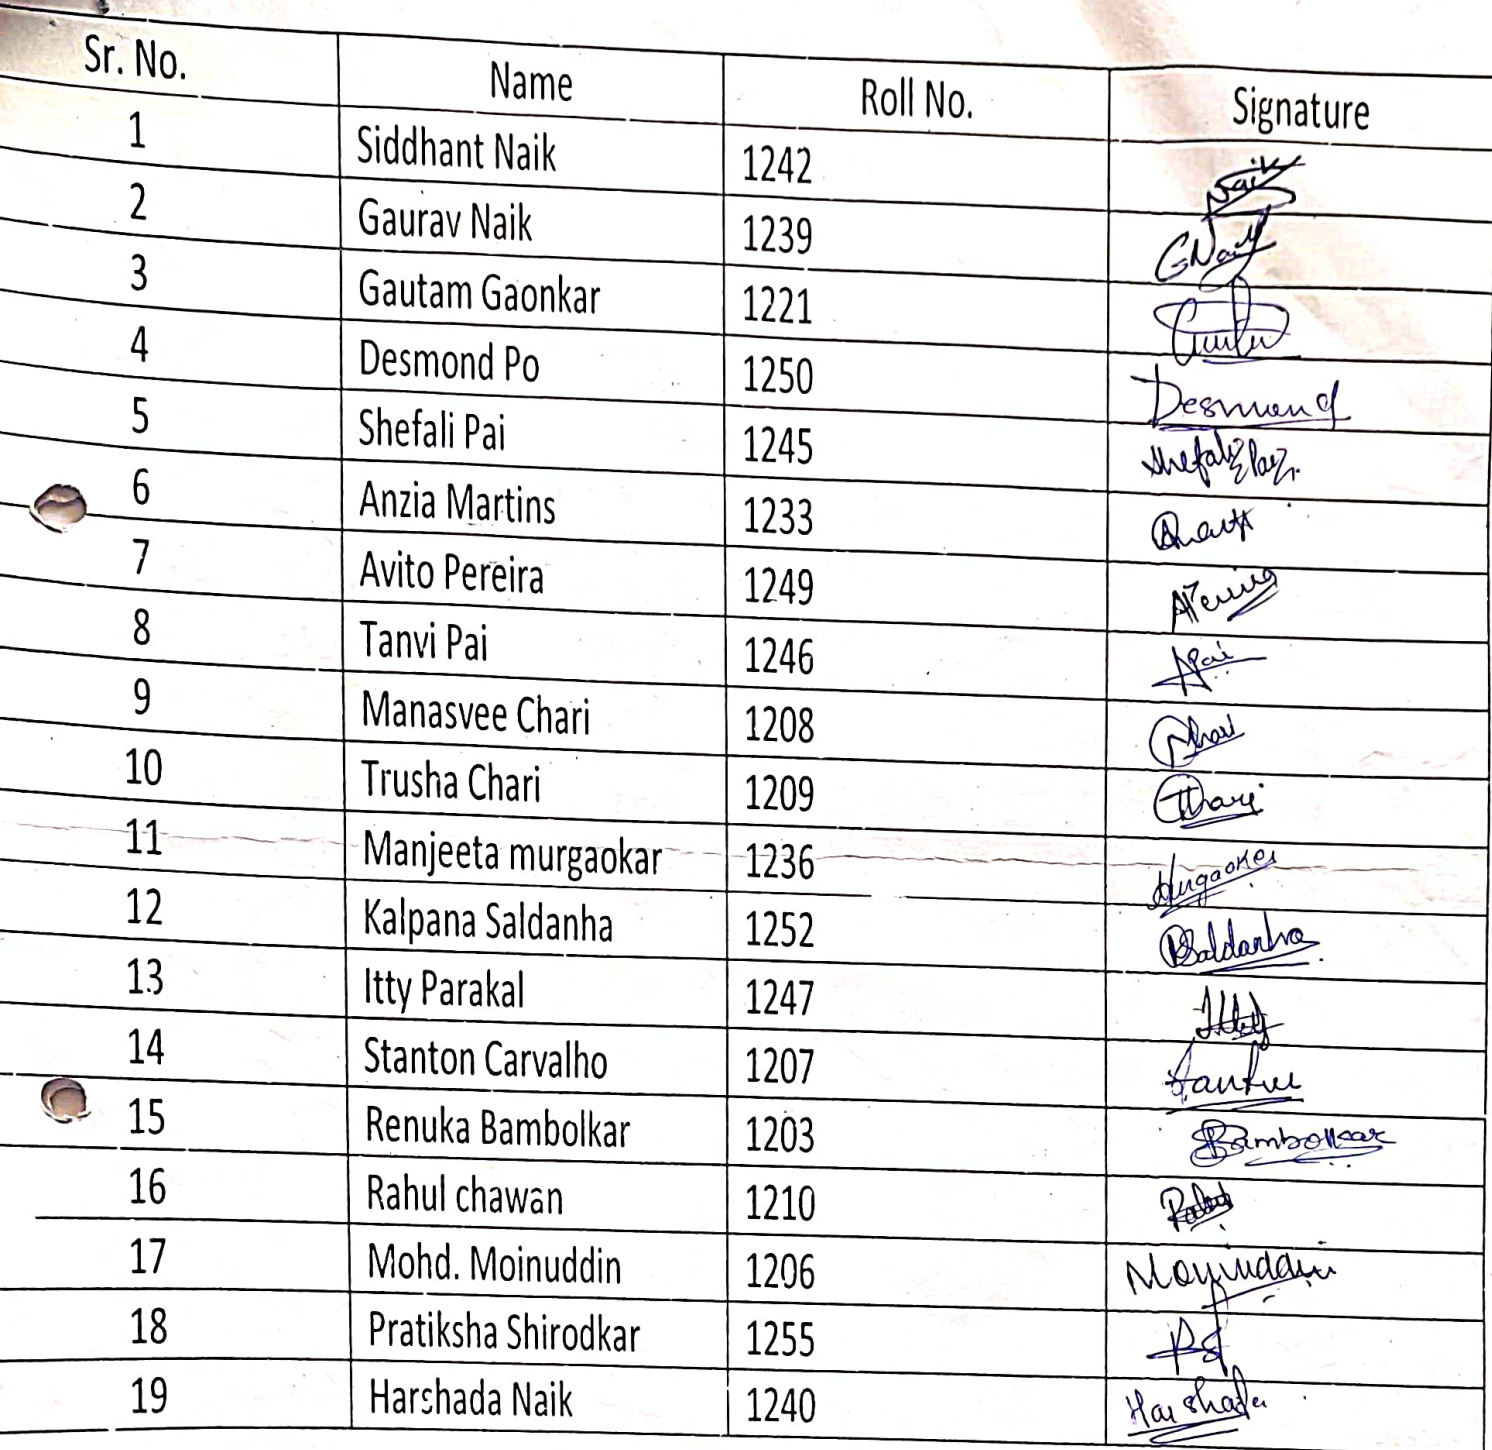 Sr. No. Name Roll No. Signature
1 Siddhant Naik 1242 Naik
2 Gaurav Naik 1239 GNaik
3 Gautam Gaonkar 1221
4 Desmond Po 1250 Desmond
5 Shefali Pai 1245 Shefali Pai
6 Anzia Martins 1233
7 Avito Pereira 1249 APereira
8 Tanvi Pai 1246 Pai
9 Manasvee Chari 1208
10 Trusha Chari 1209
11 Manjeeta murgaokar 1236
12 Kalpana Saldanha 1252 KSaldanha
13 Itty Parakal 1247 Itty
14 Stanton Carvalho 1207
15 Renuka Bambolkar 1203 Bambolkar
16 Rahul chawan 1210
17 Mohd. Moinuddin 1206 Moyinuddin
18 Pratiksha Shirodkar 1255 PS
19 Harshada Naik 1240 Harshada